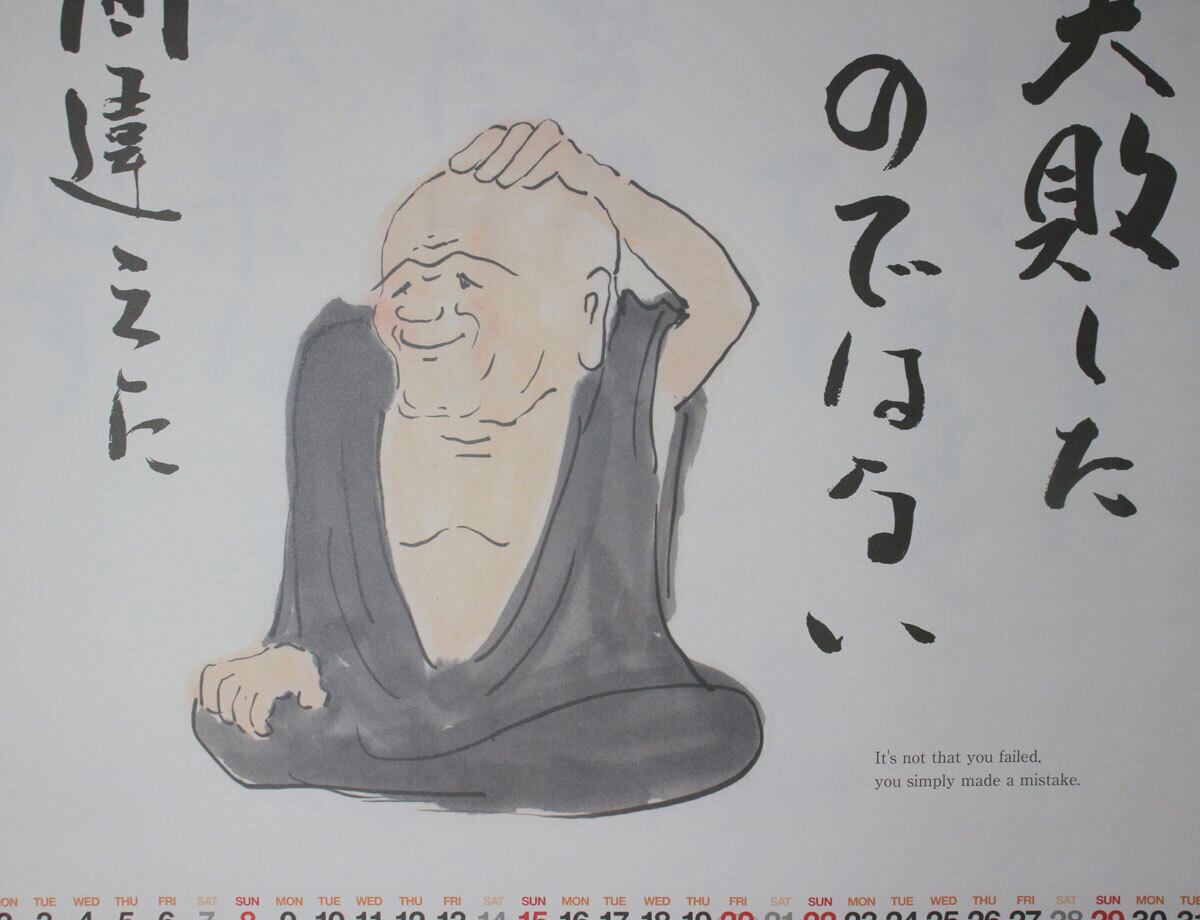 失敗した
のではない
間違えた
It's not that you failed,
you simply made a mistake.
ON TUE WED THU FRI SAT SUN MON TUE WED THU FRI SAT SUN MON TUE WED THU FRI SAT SUN MON TUE WED THU FRI SAT SUN MON TU
2 3 4 5 6 7 8 9 10 11 12 13 14 15 16 17 18 19 20 21 22 23 24 25 26 27 28 29 30